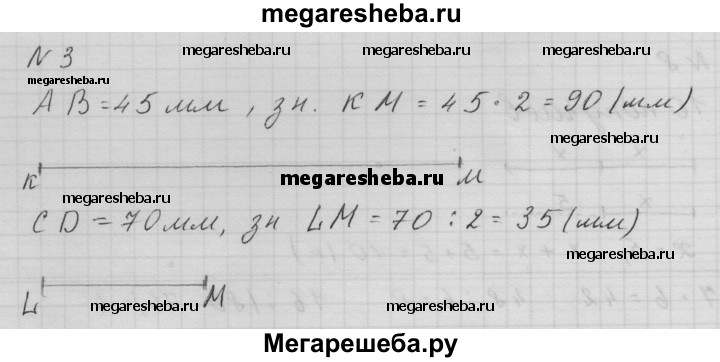 megaresheba.ru
N 3
megaresheba.ru megaresheba.ru
megaresheba.ru
AB = 45 мм, зн. KM = 45 · 2 = 90 (мм)
megaresheba.ru
K megaresheba.ru M
megaresheba.ru
CD = 70 мм, зн LM = 70 : 2 = 35 (мм)
megaresheba.ru
L megaresheba.ru M megaresheba.ru
Мегарешеба.ру